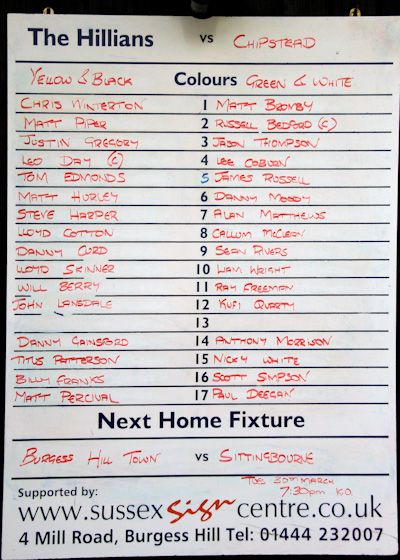 The Hillians vs CHIPSTEAD
YELLOW & BLACK Colours GREEN & WHITE
CHRIS WINTERTON 1 MATT BROMBY
MATT PIPER 2 RUSSELL BEDFORD (C)
JUSTIN GREGORY 3 JASON THOMPSON
LEO DAY (C) 4 LEE COBURN
TOM EDMONDS 5 JAMES RUSSELL
MATT HURLEY 6 DANNY MOODY
STEVE HARPER 7 ALAN MATTHEWS
LLOYD COTTON 8 CALLUM McCLEAN
DANNY CURD 9 SEAN RIVERS
LLOYD SKINNER 10 LIAM WRIGHT
WILL BERRY 11 RAY FREEMAN
JOHN LANSDALE 12 KUFI QUARTY
13
DANNY GAINSFORD 14 ANTHONY MORRISON
TITUS PATTERSON 15 NICKY WHITE
BILLY FRANKS 16 SCOTT SIMPSON
MATT PERCIVAL 17 PAUL DEEGAN
Next Home Fixture
BURGESS HILL TOWN vs SITTINGBOURNE
TUES 30TH MARCH
7:30pm K.O.
Supported by:
www.sussexsigncentre.co.uk
4 Mill Road, Burgess Hill Tel: 01444 232007